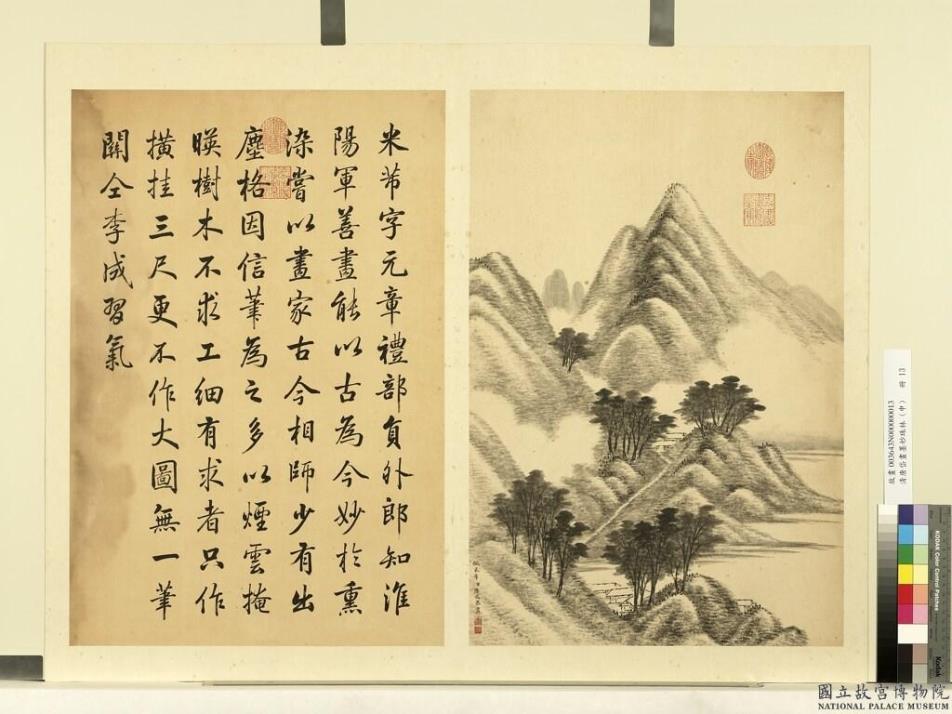 米芾字元章禮部負外郎知淮
陽軍善畫能以古為今妙於熏
染嘗以畫家古今相師少有出
塵格因信筆為之多以煙雲掩
暎樹木不求工細有求者只作
橫挂三尺更不作大圖無一筆
關仝李成習氣
故畫003643N000000013
清唐岱畫墨妙珠林(申) 冊 13
KODAK Color Control Patches
Kodak
國立故宮博物院
NATIONAL PALACE MUSEUM